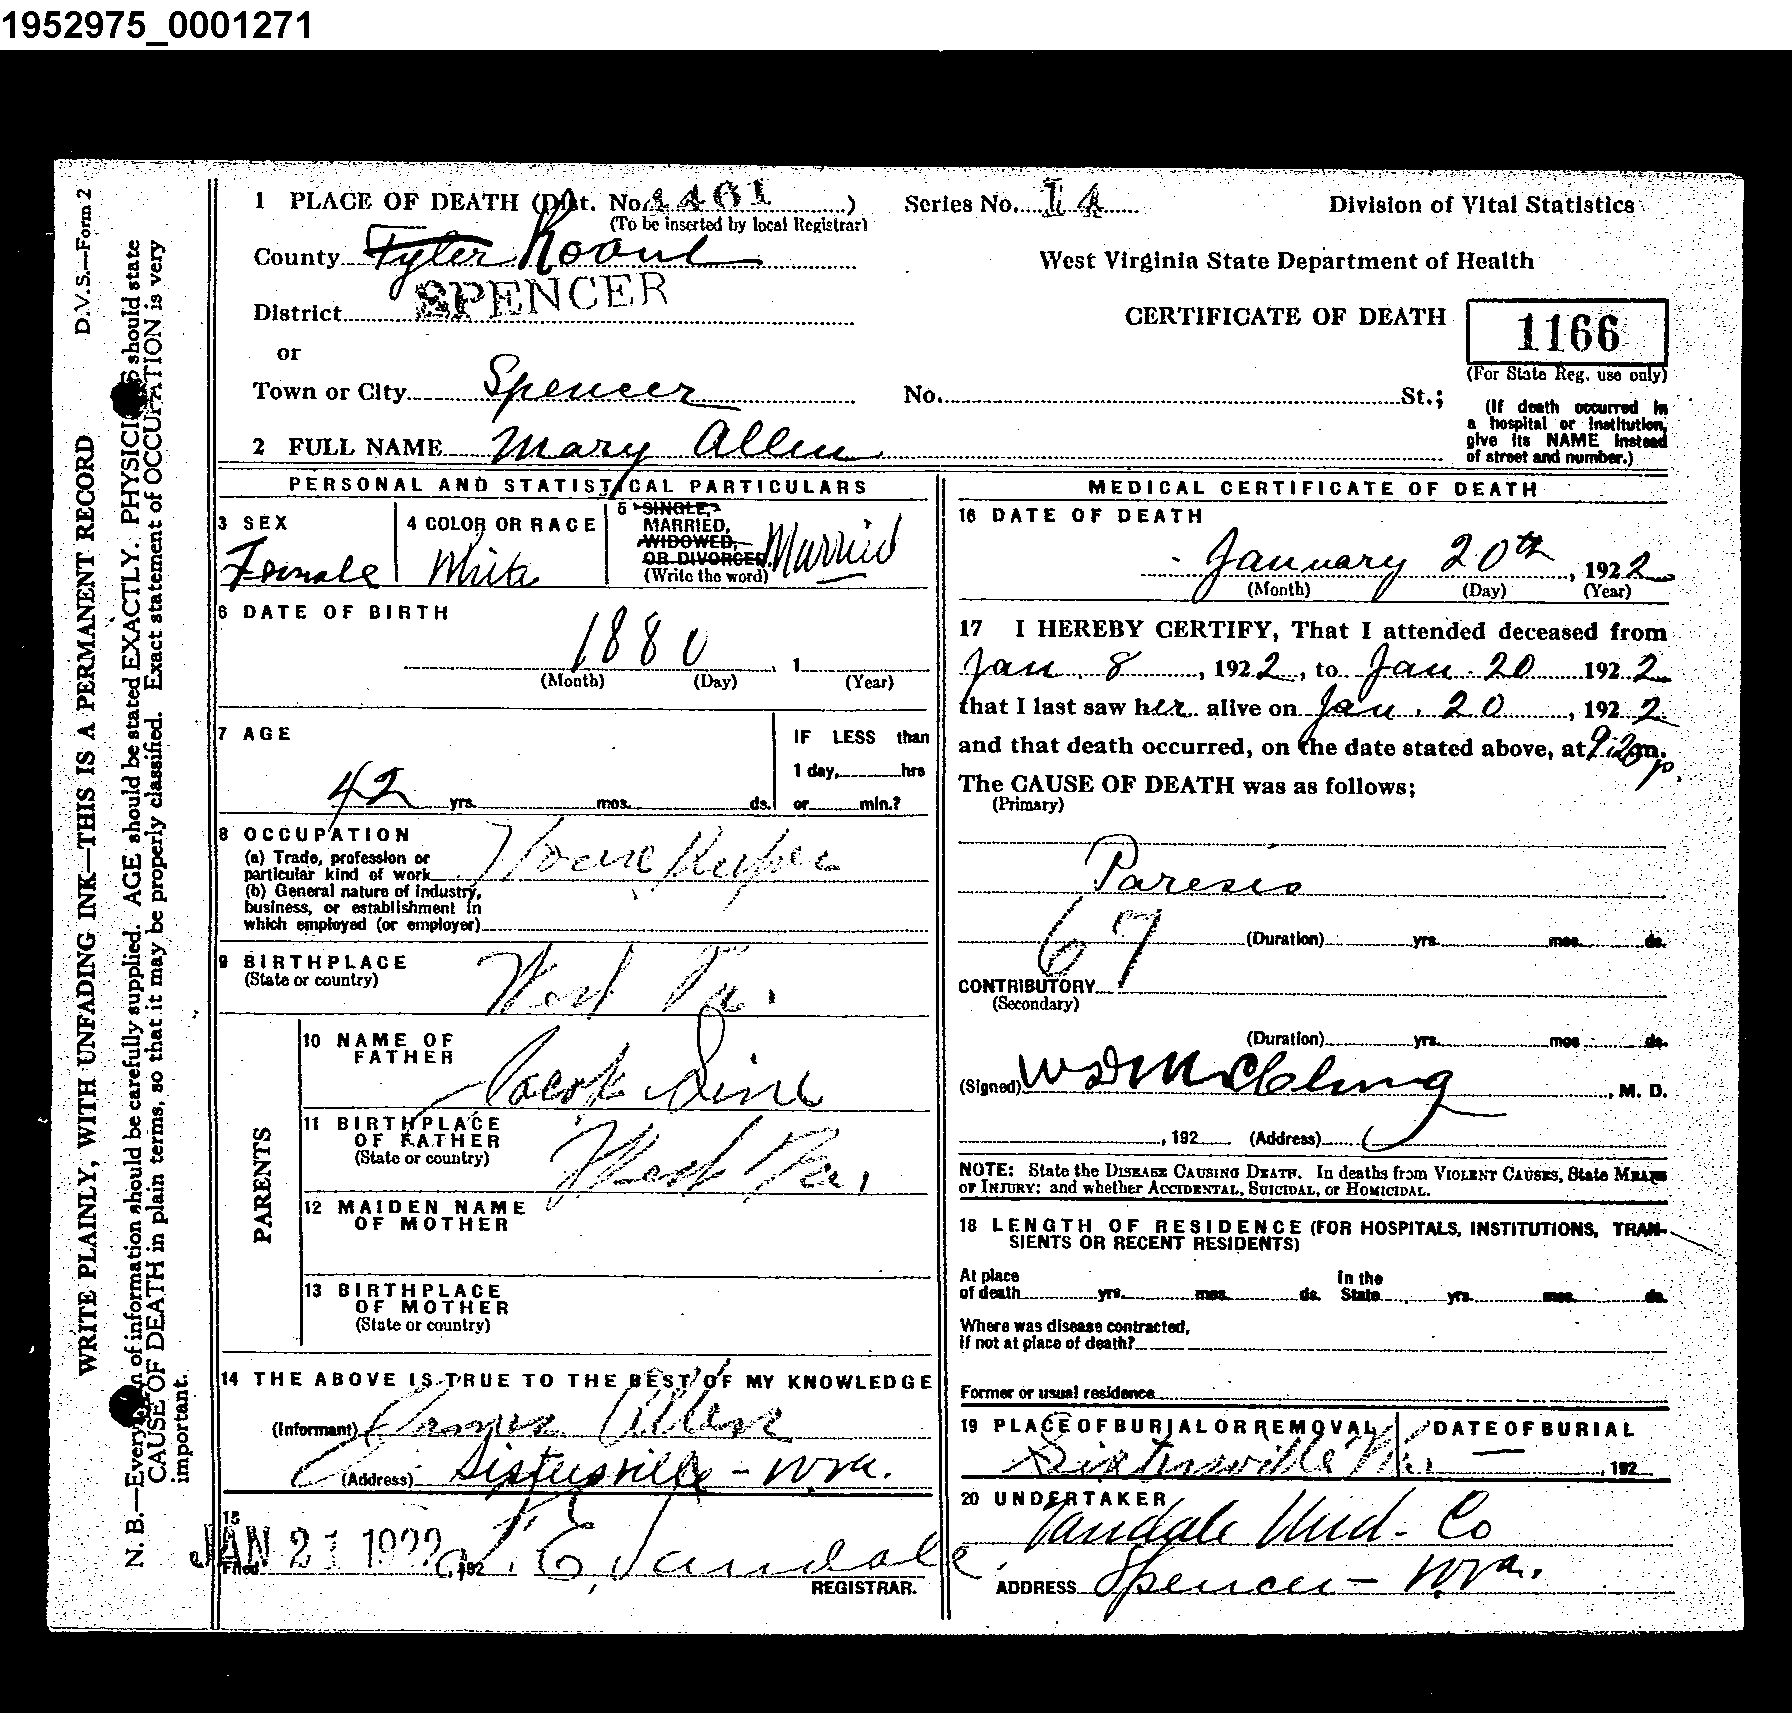 1952975_0001271
1 PLACE OF DEATH (Dist. No. 4461 ) Series No. 14 Division of Vital Statistics
(To be inserted by local Registrar)
County Tyler Roane West Virginia State Department of Health
District SPENCER CERTIFICATE OF DEATH 1166
or (For State Reg. use only)
Town or City Spencer No. St.;
(If death occurred in
a hospital or institution,
give its NAME instead
of street and number.)
2 FULL NAME Mary Allen
PERSONAL AND STATISTICAL PARTICULARS
3 SEX
Female
4 COLOR OR RACE
White
5 SINGLE,
MARRIED,
WIDOWED,
OR DIVORCED.
(Write the word)
Married
6 DATE OF BIRTH
1880 , 1
(Month) (Day) (Year)
7 AGE
42 yrs. mos. ds.
IF LESS than
1 day, hrs
or min.?
8 OCCUPATION
(a) Trade, profession or
particular kind of work House Keeper
(b) General nature of industry,
business, or establishment in
which employed (or employer)
9 BIRTHPLACE
(State or country)
West Va.
PARENTS
10 NAME OF
FATHER
11 BIRTHPLACE
OF FATHER
(State or country)
West Va.
12 MAIDEN NAME
OF MOTHER
13 BIRTHPLACE
OF MOTHER
(State or country)
14 THE ABOVE IS TRUE TO THE BEST OF MY KNOWLEDGE
(Informant) James Allen
(Address) Sistersville - W.Va.
15
JAN 21 1922
Filed , 192 E. Vandale
REGISTRAR.
MEDICAL CERTIFICATE OF DEATH
16 DATE OF DEATH
January 20th , 1922
(Month) (Day) (Year)
17 I HEREBY CERTIFY, That I attended deceased from
Jan. 8 , 1922, to Jan. 20 1922
that I last saw her alive on Jan. 20 , 1922
and that death occurred, on the date stated above, at 9:20 p. m.
The CAUSE OF DEATH was as follows;
(Primary)
Paresis
67
(Duration) yrs. mos. ds.
CONTRIBUTORY
(Secondary)
(Duration) yrs. mos. ds.
(Signed) , M. D.
, 192 (Address)
NOTE: State the DISEASE CAUSING DEATH. In deaths from VIOLENT CAUSES, State MEANS
OF INJURY; and whether ACCIDENTAL, SUICIDAL, or HOMICIDAL.
18 LENGTH OF RESIDENCE (FOR HOSPITALS, INSTITUTIONS, TRAN-
SIENTS OR RECENT RESIDENTS)
At place
of death yrs. mos. ds.
In the
State yrs. mos. ds.
Where was disease contracted,
if not at place of death?
Former or usual residence
19 PLACE OF BURIAL OR REMOVAL
Sistersville W.Va.
DATE OF BURIAL
, 192
20 UNDERTAKER
Vandale Und. Co
ADDRESS Spencer - W.Va.
D.V.S.—Form 2
WRITE PLAINLY, WITH UNFADING INK—THIS IS A PERMANENT RECORD
N. B.—Every of information should be carefully supplied. AGE should be stated EXACTLY. PHYSICIANS should state
CAUSE OF DEATH in plain terms, so that it may be properly classified. Exact statement of OCCUPATION is very
important.